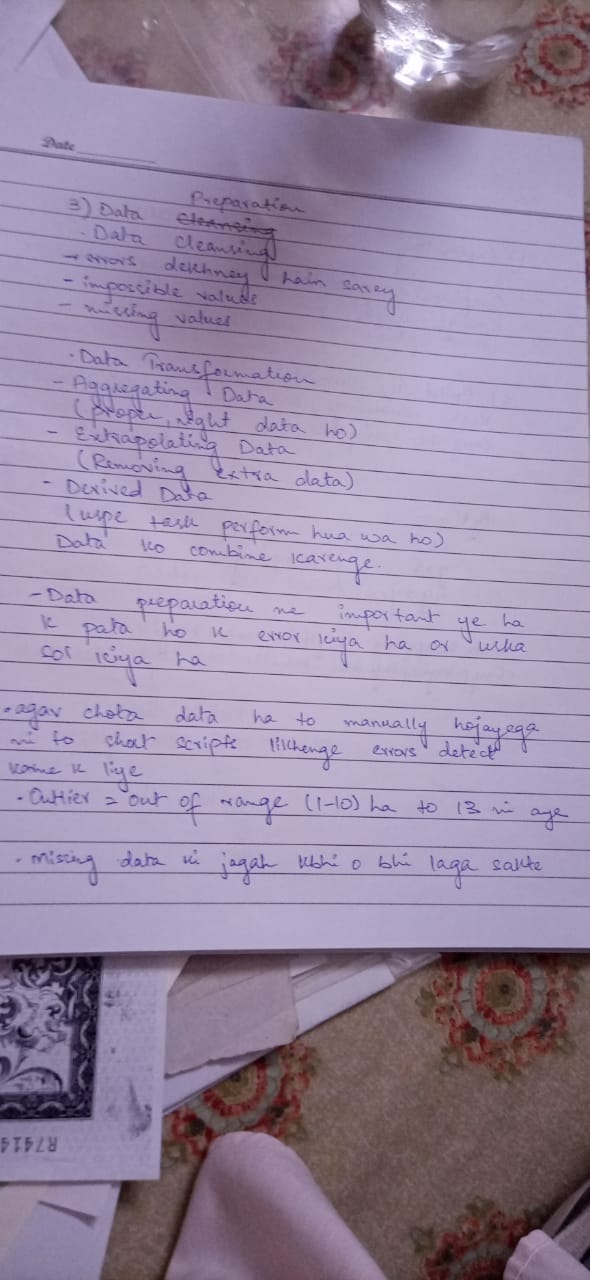 Date
Preparation
3) Data Cleansing
· Data Cleansing
- errors dekhney hain sarey
- impossible values
- missing values
· Data Transformation
- Aggregating Data
(proper, right data ho)
- Extrapolating Data
(Removing extra data)
- Derived Data
(uspe task perform hua wa ho)
Data ko combine karenge.
- Data preparation me important ye ha
k pata ho k error kiya ha or uska
sol kiya ha
· agar chota data ha to manually hojayega
ni to short scripts likhenge errors detect
karne k liye
· Outlier = out of range (1-10) ha to 13 ni aye
· missing data ki jagah kbhi 0 bhi laga sakte
R7414